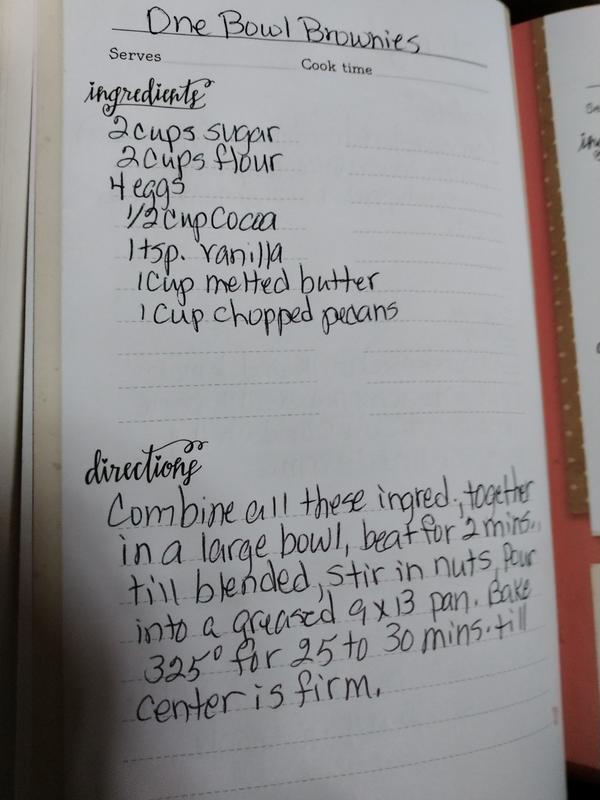 One Bowl Brownies
Serves Cook time
ingredients
2 cups sugar
2 cups flour
4 eggs
1/2 cup Cocoa
1 tsp. vanilla
1 cup melted butter
1 cup chopped pecans
directions
Combine all these ingred., together
in a large bowl, beat for 2 mins.,
till blended, stir in nuts, Pour
into a greased 9x13 pan. Bake
325° for 25 to 30 mins. till
center is firm.